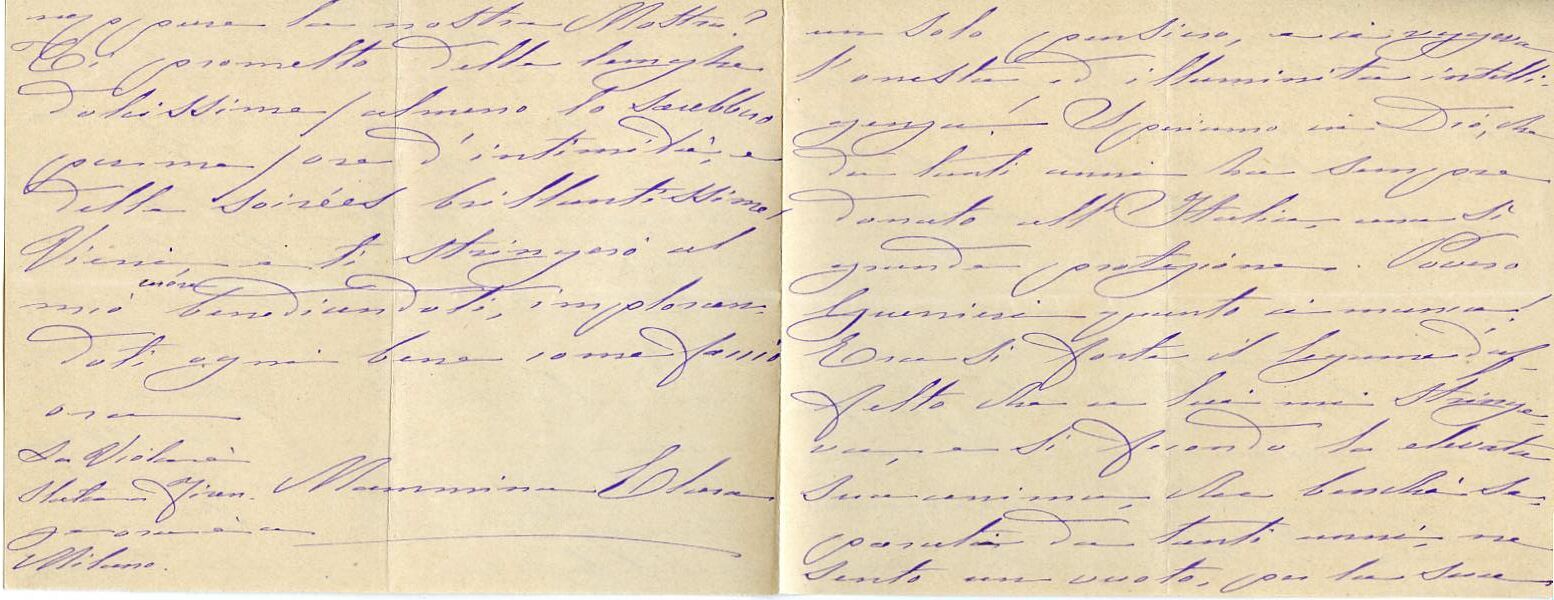 neppure la nostra Mostra?
Ti prometto delle lunghe
dolcissime (almeno lo sarebbero
per me) ore d'intimità, e
delle soirées brillantissime,
Vieni e ti stringerò al
mio cuore benedicendoti, imploran-
doti ogni bene come faccio
ora
Mammina Clara
Milano.
un solo pensiero, e ci reggeva
l'onesta ed illuminata intelli-
genza! Speriamo in Dio, che
da tanti anni ha sempre
donato all'Italia, una sì
grande protezione. Povero
Guerrieri quanto ci manca!
Era sì forte il legame d'af-
fetto che a lui mi stringe-
va, e sì la elevata
sua anima, che benchè se-
parati da tanti anni, ne
sento un vuoto, per la sua